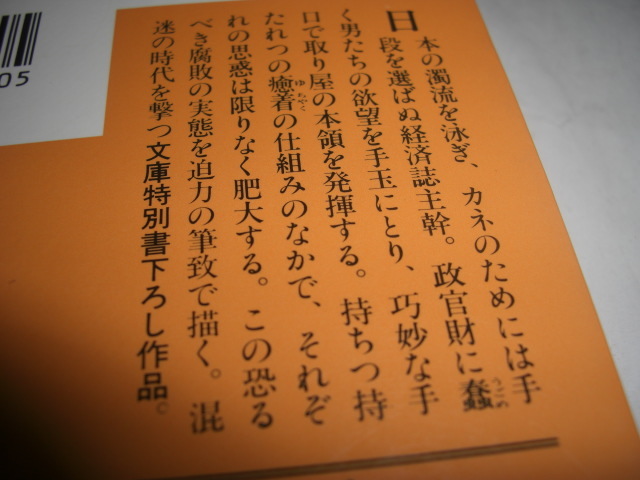 日本の濁流を泳ぎ、カネのためには手
段を選ばぬ経済誌主幹。政官財に蠢
うごめ
く男たちの欲望を手玉にとり、巧妙な手
口で取り屋の本領を発揮する。持ちつ持
たれつの癒着の仕組みのなかで、それぞ
ゆちゃく
れの思惑は限りなく肥大する。この恐る
べき腐敗の実態を迫力の筆致で描く。混
迷の時代を撃つ文庫特別書下ろし作品。
05